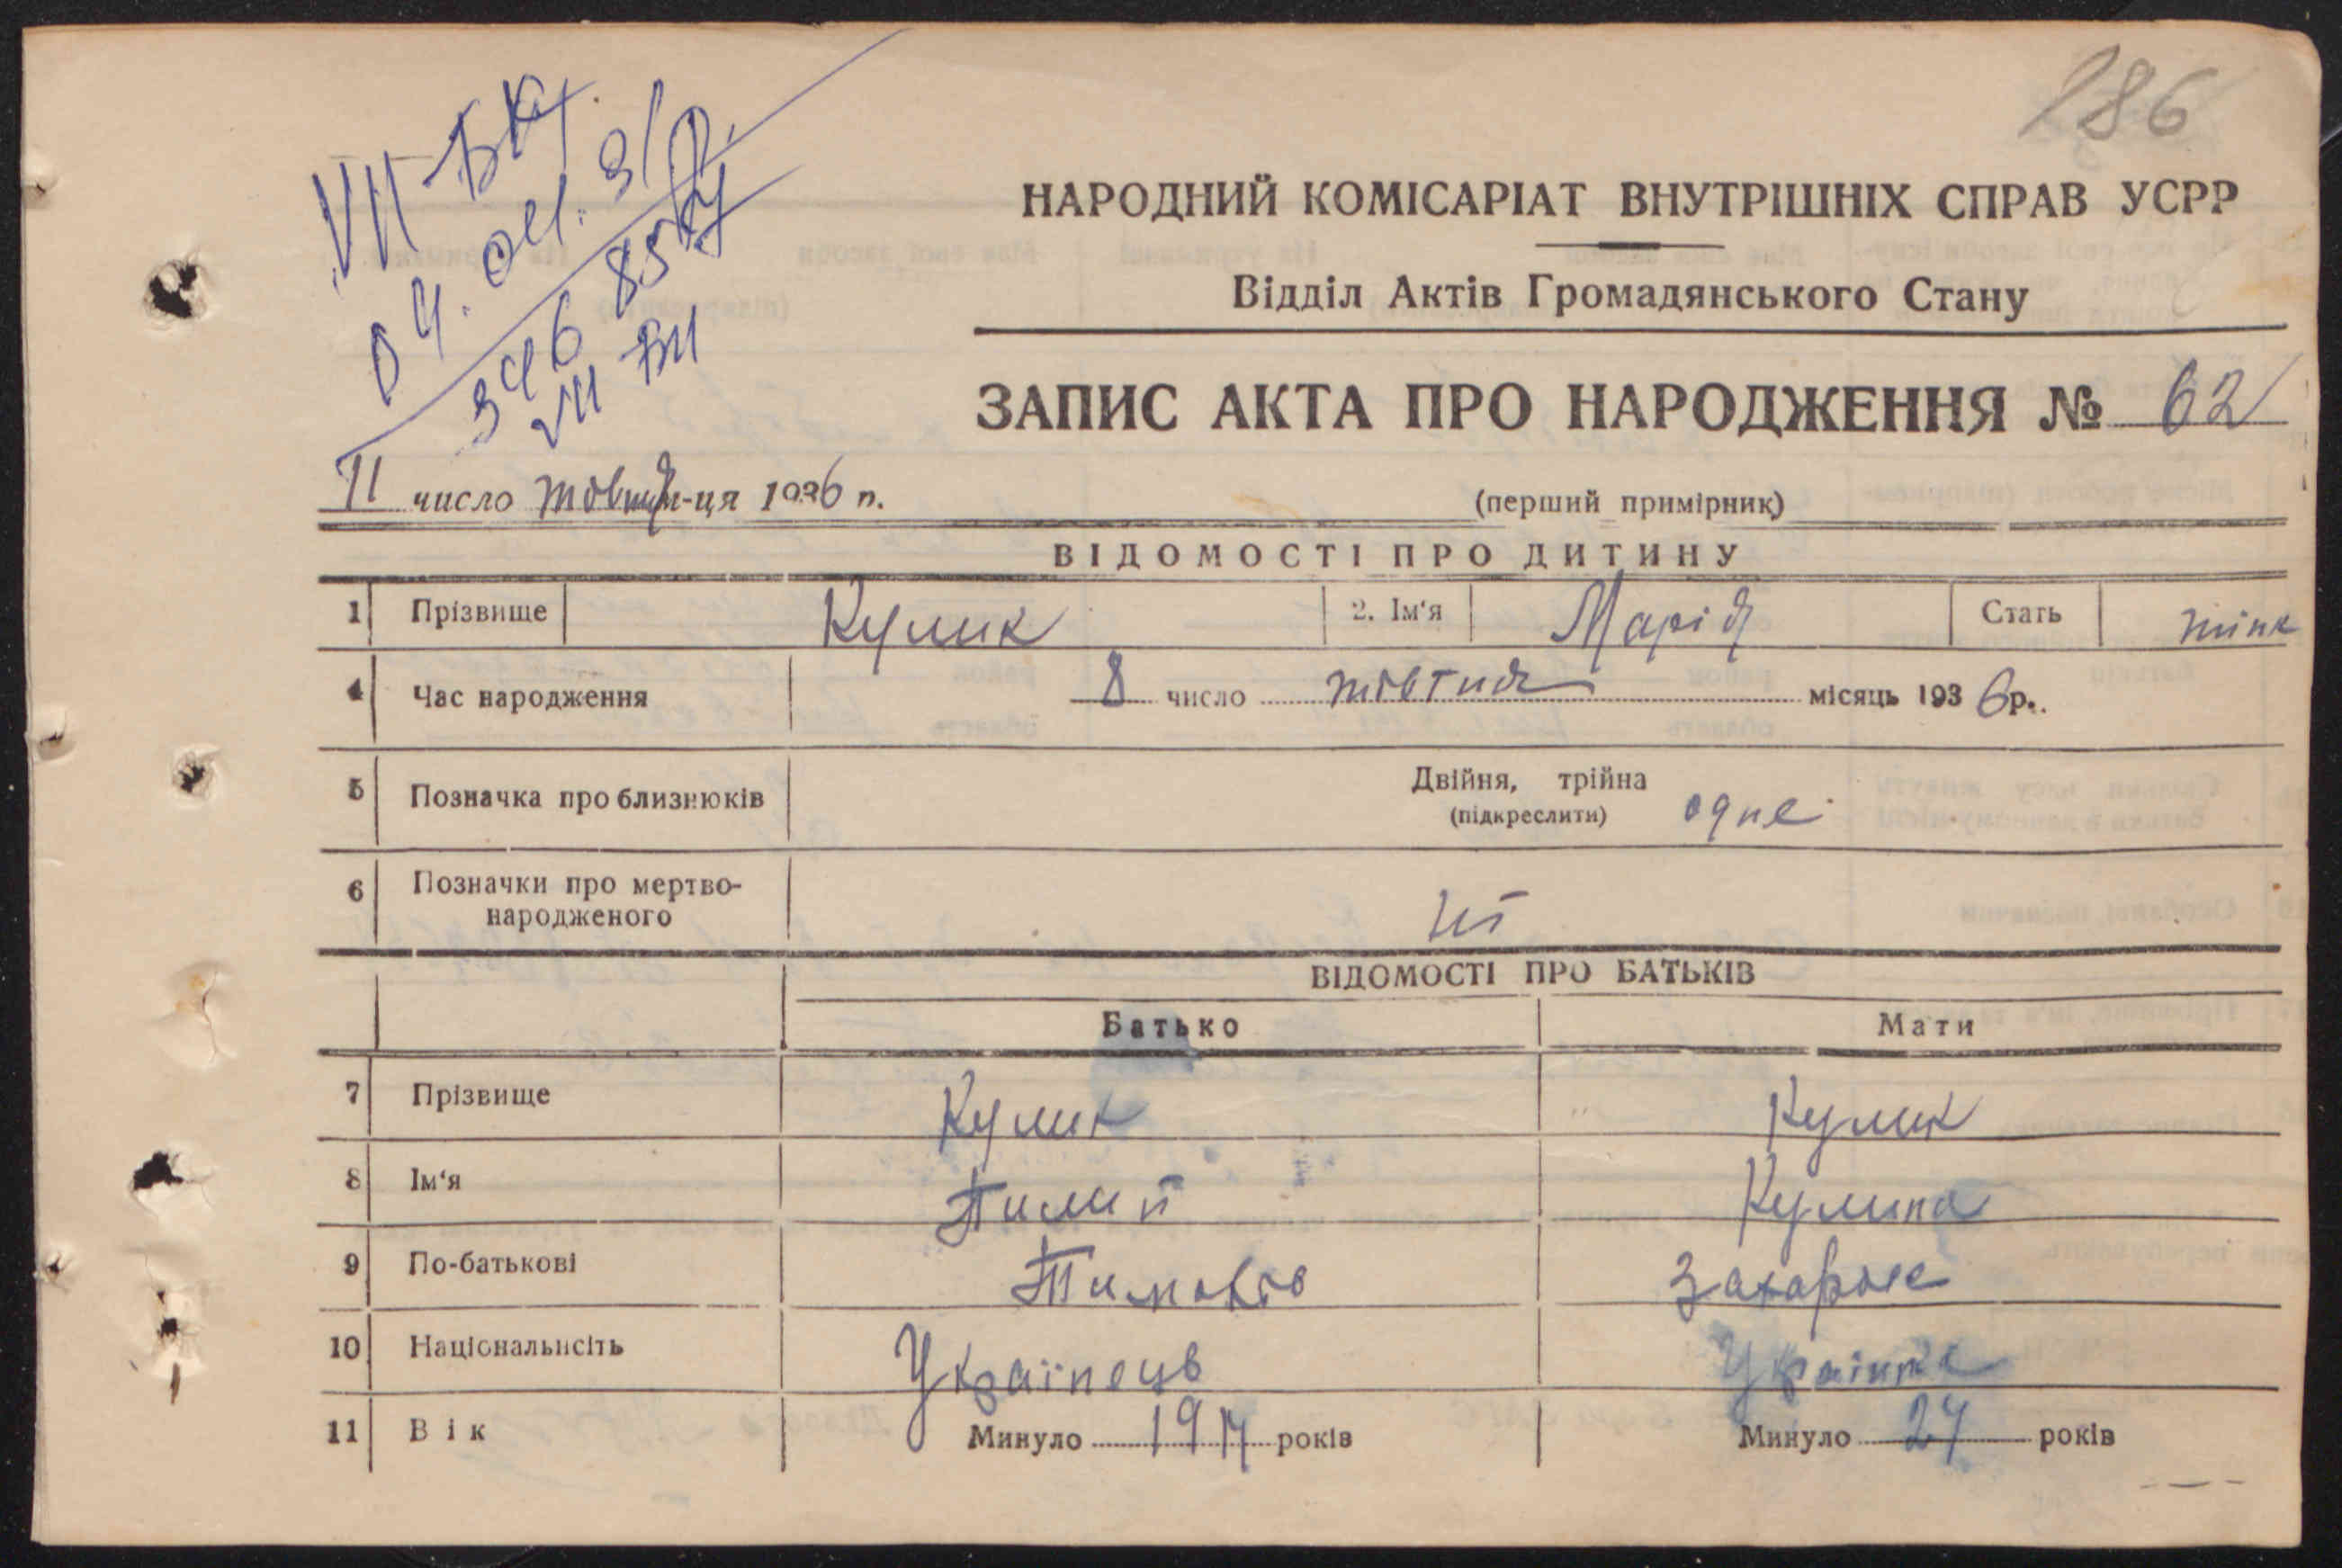 186
VII БК
04. 01. 91 р.
346 85
VII БП
НАРОДНИЙ КОМІСАРІАТ ВНУТРІШНІХ СПРАВ УСРР
Відділ Актів Громадянського Стану
ЗАПИС АКТА ПРО НАРОДЖЕННЯ № 62
11 число жовтн м-ця 1936 р.
(перший примірник)
ВІДОМОСТІ ПРО ДИТИНУ
1 Прізвище Кулик 2. Ім'я Марія Стать жінк
4 Час народження 8 число жовтня місяць 1936 р.
5 Позначка про близнюків Двійня, трійна
(підкреслити) одне
6 Позначки про мертво-
народженого ні
ВІДОМОСТІ ПРО БАТЬКІВ
Батько Мати
7 Прізвище Кулик Кулик
8 Ім'я Пилип Кулина
9 По-батькові Захаров
10 Національнсіть Українець Українка
11 Вік Минуло 19 років Минуло 24 років